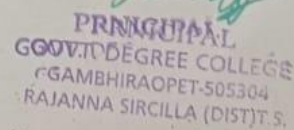 PRINCIPAL
GOVT. DEGREE COLLEGE
GAMBHIRAOPET-505304
RAJANNA SIRCILLA (DIST)T.S.